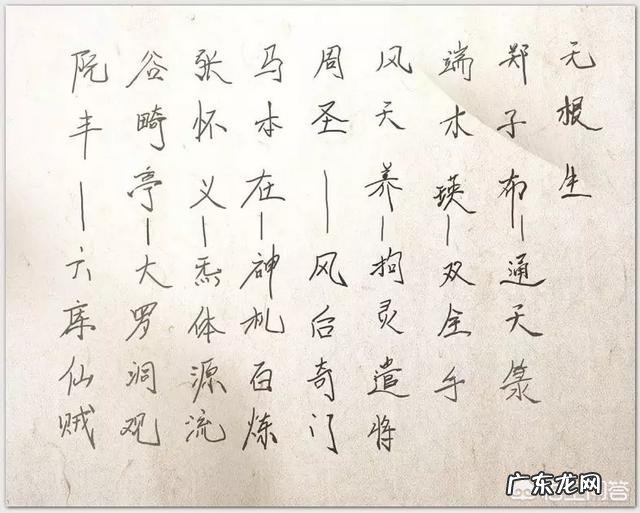 无根生
郑子布—通天箓
端木瑛—双全手
风天养—拘灵遣将
周圣—风后奇门
马本在—神机百炼
张怀义—炁体源流
谷畸亭—大罗洞观
阮丰—六库仙贼
广东龙网